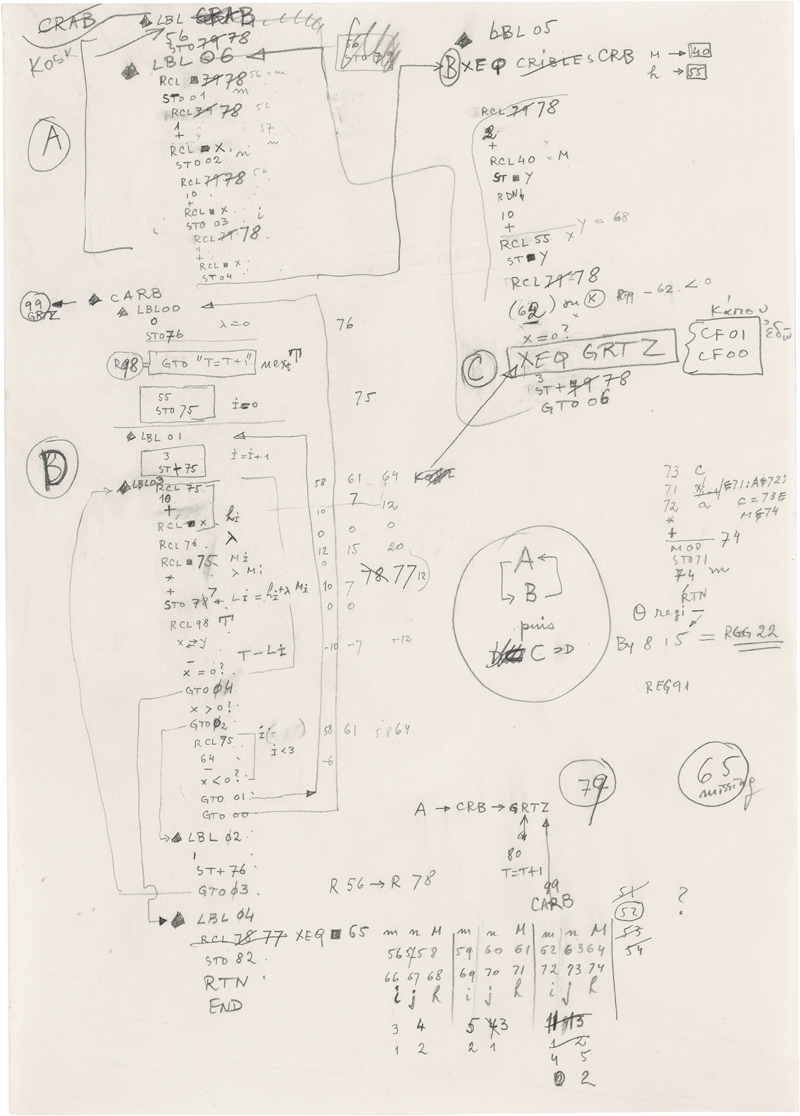 CRAB
LBL CRAB
56
STO 79 78
KOSK
LBL 06
RCL 79 78 56 = m
STO 01 m
RCL 79 78 56
1
+
57
RCL ■ X m
STO 02 n
RCL 79 78 56
10
+
RCL ■ X i
STO 03
RCL 79 78
11
+
RCL ■ X
STO 4
A
56
STO 79
LBL 05
B XEQ CRIBLES CRB M → 40
h → 55
RCL 79 78
2
+
RCL 40 M
ST ■ Y
RDN↓
10
+
RCL 55 X Y = 68
ST ■ Y
RCL 79 = 78
(62) ou K R79 - 62 < 0
X = 0?
C XEQ GRTZ
3
ST + 79 78
GTO 06
Κάπου
CF01
CF00
ἐδῶ
99 ← CARB
GRTZ
LBL 00
0
STO 76 λ = 0 76
R98 = GTO "T=T+1" next T
55
STO 75 i = 0 75
LBL 01
3
ST + 75 i = i+1
D
LBL 03
RCL 75 58 61 64
10 7
+ 10 12
RCL ■ X hi 0 0 0
RCL 76 λ 12 15 20
RCL ■ 75 Mi 0
* λ Mi
+ 10 7
STO 78 7 Li = hi + λ Mi 0 0
78 77 12
RCL 98 T
x⇄y
- T - Li -10 -7 -12
X = 0?
GTO 04
X > 0?
GTO 02 58 61 58 64
RCL 75 i(= )
64 i < 3
- -6
X < 0?
GTO 01
GTO 00
LBL 02
1
ST + 76
GTO 03
LBL 04
RCL 78 77 XEQ ■ 65
STO 82
RTN
END
73 C
71 X
72 a C = 73
* M 74
+ 74
MOD
STO 71
74 m
RTN
By 8 15 = REG 22
REG 91
A
B
puis
C = D
79
65
missing
A → CRB → GRTZ
80
T=T+1
99
CARB
R 56 → R 78
m n M m n M m n M
56 57 58 59 60 61 62 63 64
66 67 68 69 70 71 72 73 74
i j h i j h i j h
3 4 5 4 3 11 13
1 2 2 1 1 2
4 5
0 2
51
52
53
54
?